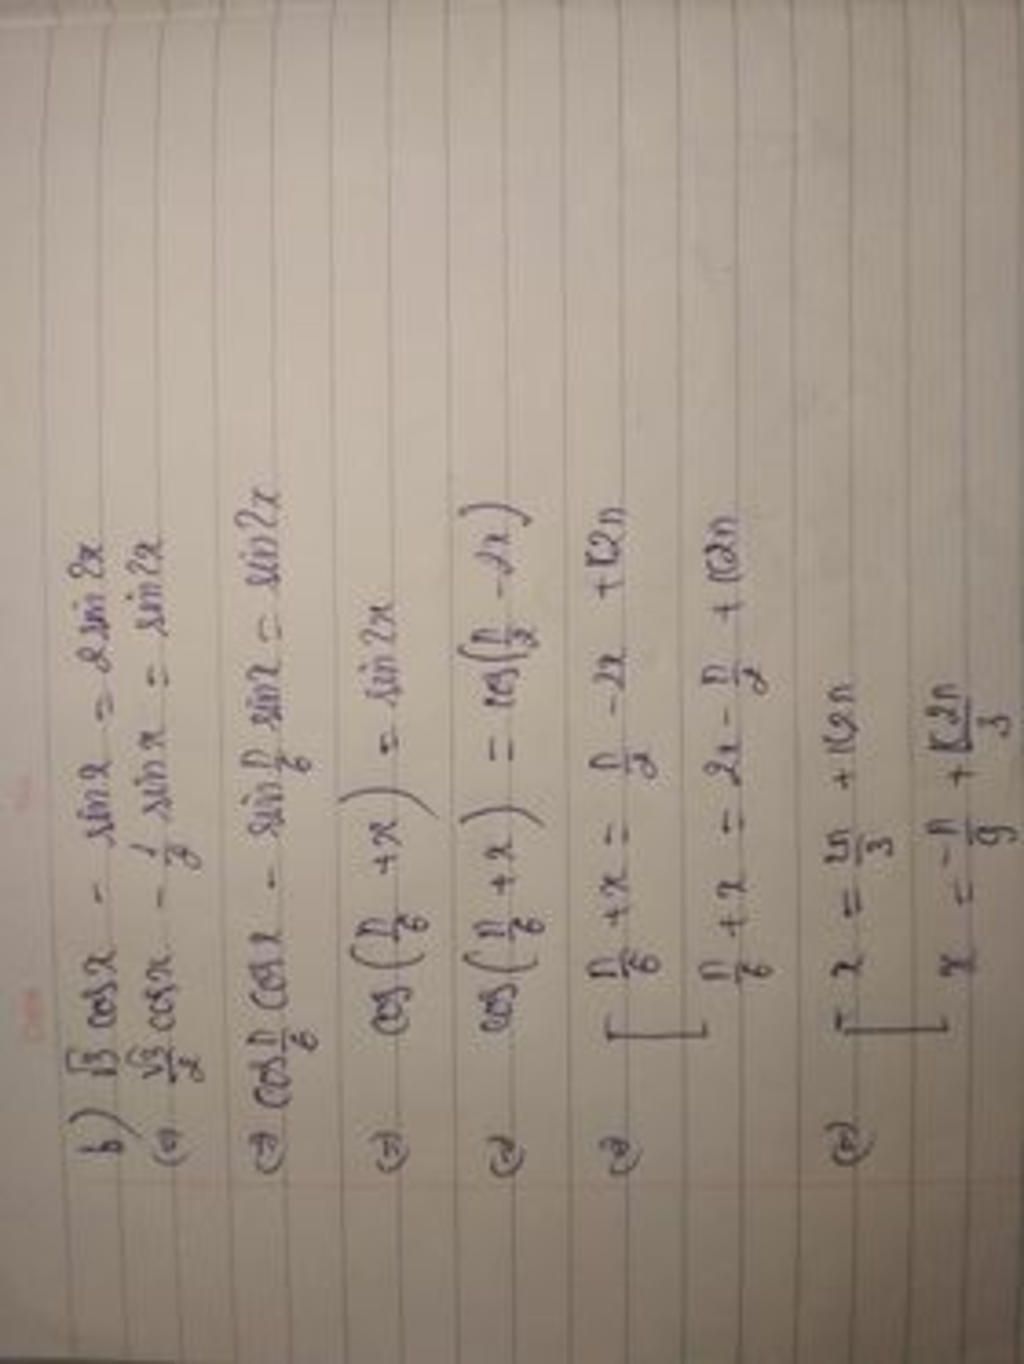 b) √3 cosx - sinx = 2sin2x
(=) √3/2 cosx - 1/2 sinx = sin2x
(=) cos π/6 cosx - sin π/6 sinx = sin2x
(=) cos(π/6 + x) = sin2x
(=) cos(π/6 + x) = cos(π/2 - 2x)
(=) [ π/6 + x = π/2 - 2x + k2π
π/6 + x = 2x - π/2 + k2π
(=) [ x = 2π/3 + k2π
x = -π/9 + k2π/3